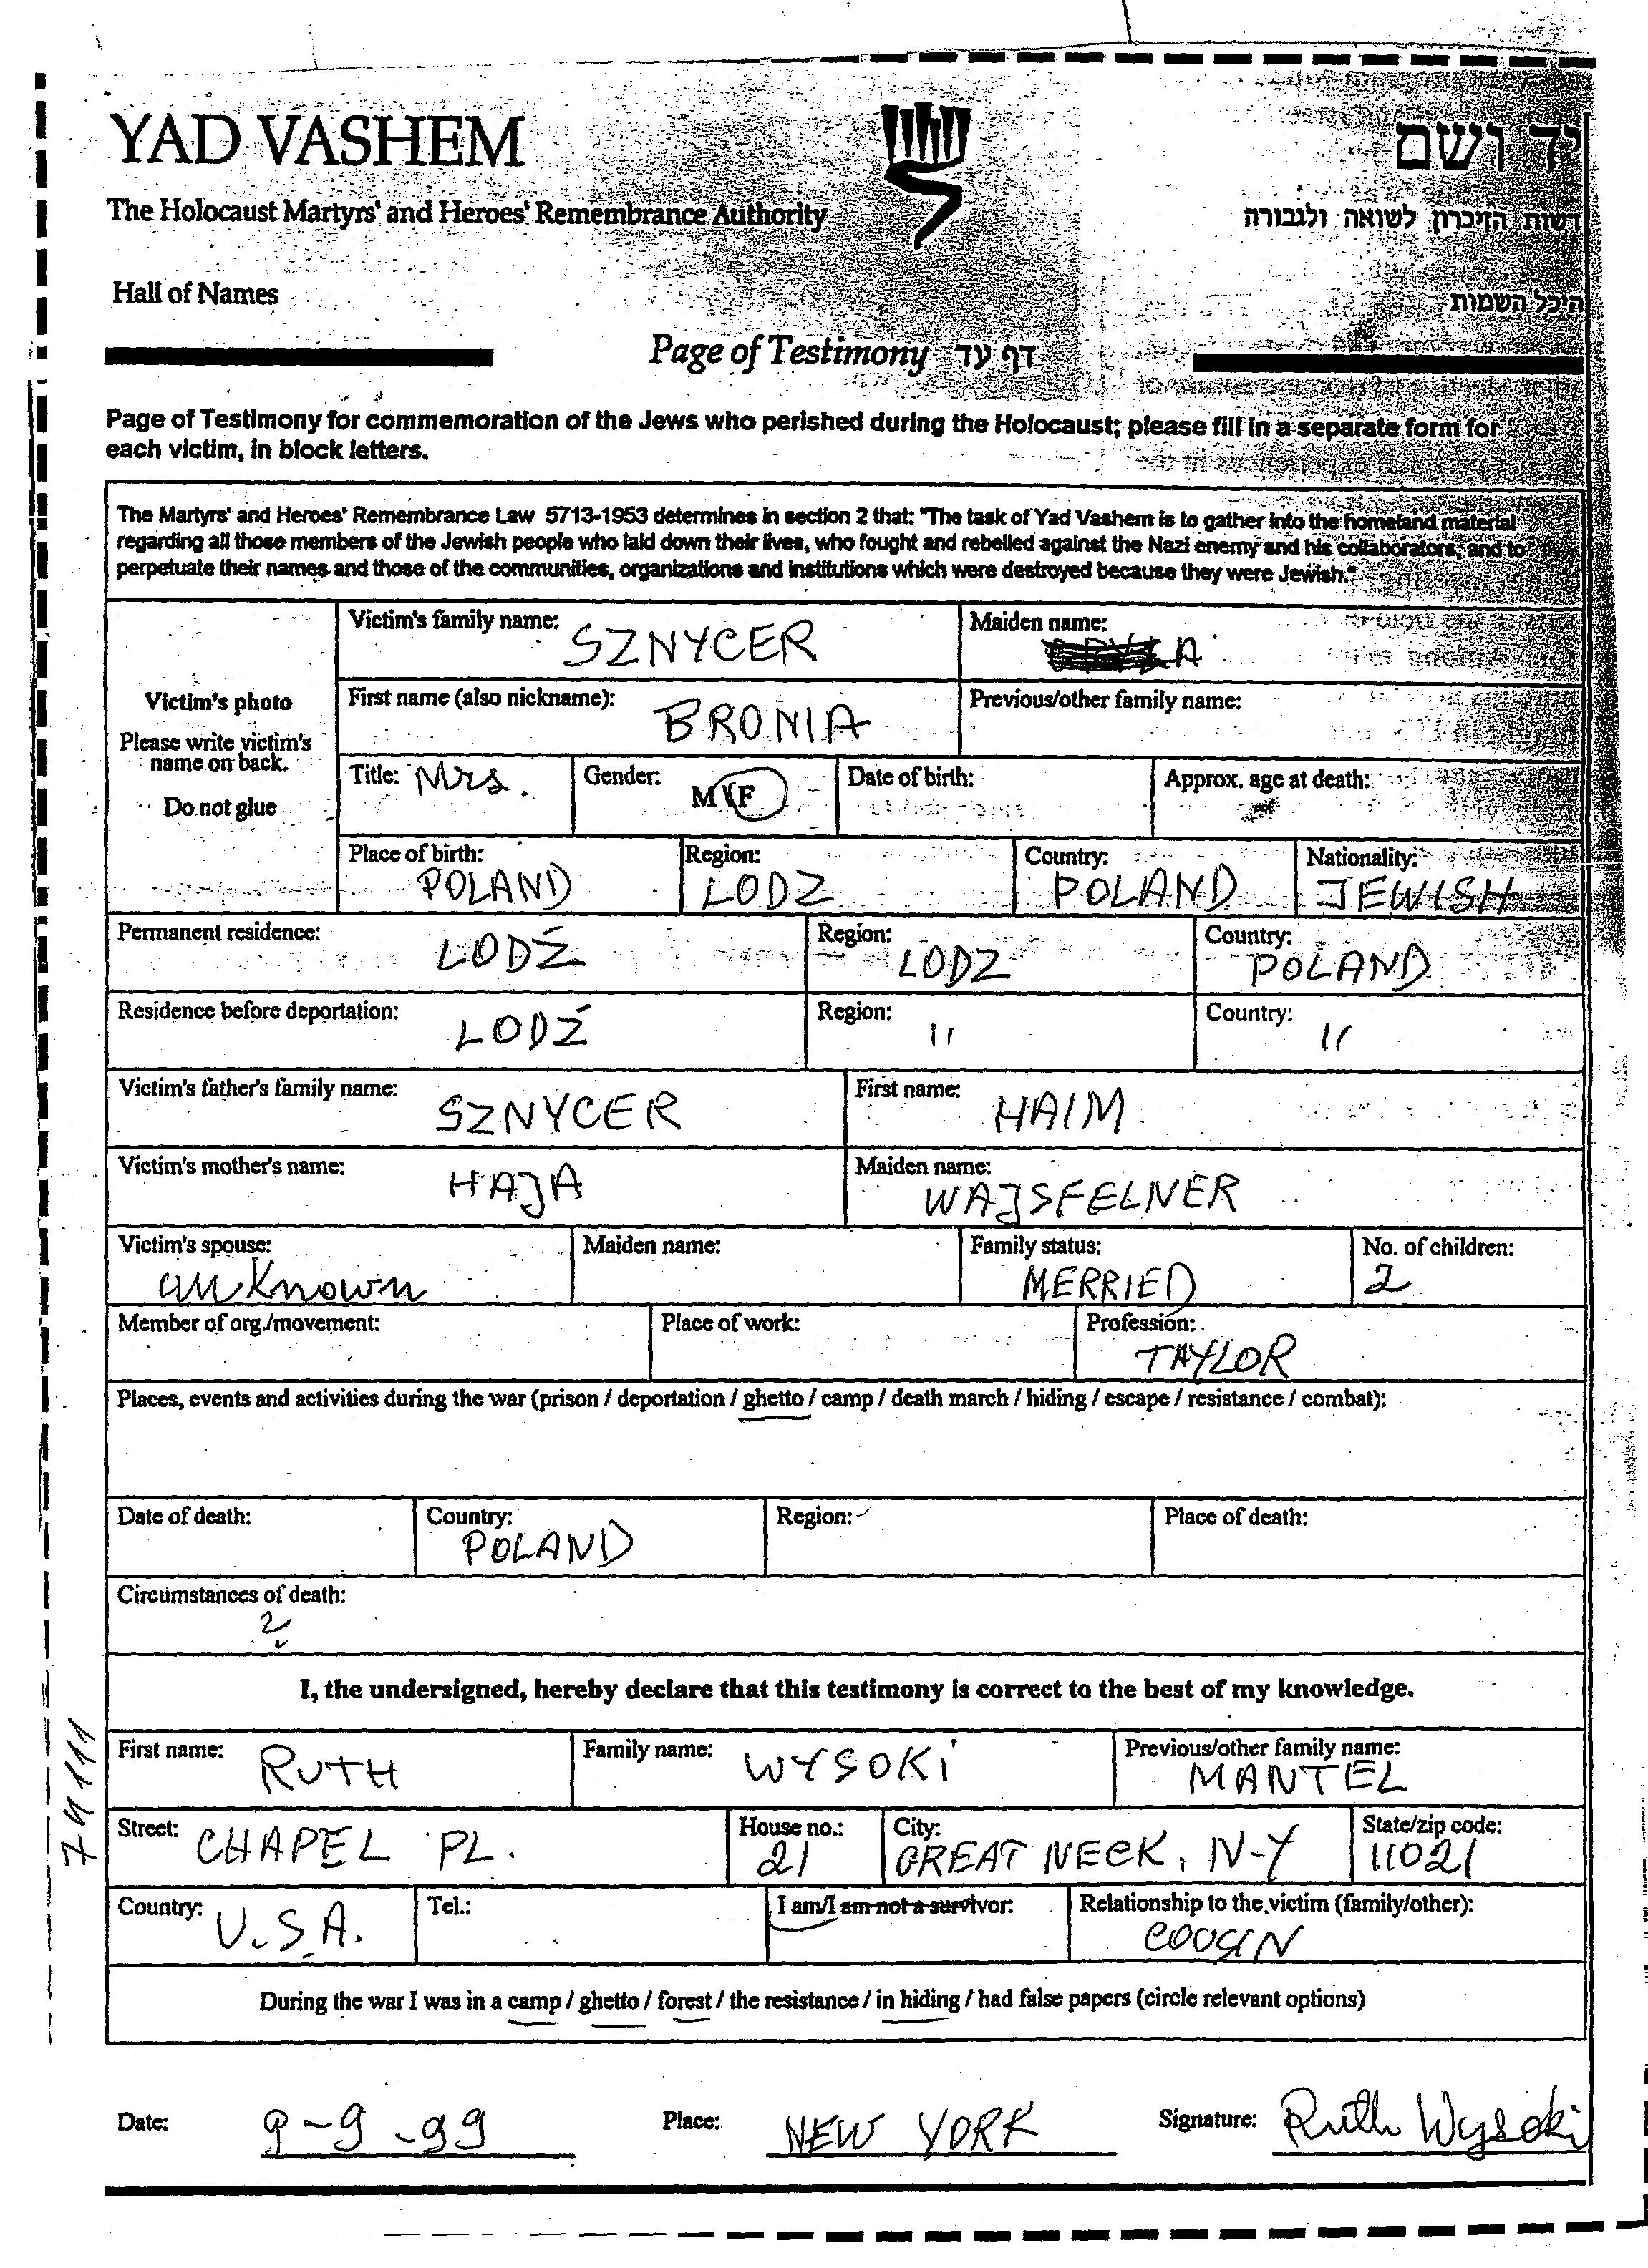 YAD VASHEM
יד ושם
The Holocaust Martyrs' and Heroes' Remembrance Authority
רשות הזיכרון לשואה ולגבורה
Hall of Names
היכל השמות
Page of Testimony דף עד
Page of Testimony for commemoration of the Jews who perished during the Holocaust; please fill in a separate form for
each victim, in block letters.
The Martyrs' and Heroes' Remembrance Law 5713-1953 determines in section 2 that: "The task of Yad Vashem is to gather into the homeland material
regarding all those members of the Jewish people who laid down their lives, who fought and rebelled against the Nazi enemy and his collaborators, and to
perpetuate their names and those of the communities, organizations and institutions which were destroyed because they were Jewish."
Victim's photo
Please write victim's
name on back.
Do not glue
Victim's family name: SZNYCER
Maiden name:
First name (also nickname): BRONIA
Previous/other family name:
Title: Mrs.
Gender: M F
Date of birth:
Approx. age at death:
Place of birth: POLAND
Region: LODZ
Country: POLAND
Nationality: JEWISH
Permanent residence: LODŹ
Region: LODZ
Country: POLAND
Residence before deportation: LODŹ
Region: "
Country: "
Victim's father's family name: SZNYCER
First name: HAIM
Victim's mother's name: HAJA
Maiden name: WAJSFELNER
Victim's spouse: unknown
Maiden name:
Family status: MERRIED
No. of children: 2
Member of org./movement:
Place of work:
Profession: TAYLOR
Places, events and activities during the war (prison / deportation / ghetto / camp / death march / hiding / escape / resistance / combat):
Date of death:
Country: POLAND
Region:
Place of death:
Circumstances of death: ?
I, the undersigned, hereby declare that this testimony is correct to the best of my knowledge.
First name: RUTH
Family name: WYSOKI
Previous/other family name: MANTEL
Street: CHAPEL PL.
House no.: 21
City: GREAT NECK, N-Y
State/zip code: 11021
Country: U.S.A.
Tel.:
I am/I am not a survivor:
Relationship to the victim (family/other): COUSIN
During the war I was in a camp / ghetto / forest / the resistance / in hiding / had false papers (circle relevant options)
Date: 9-9-99
Place: NEW YORK
Signature: Ruth Wysoki